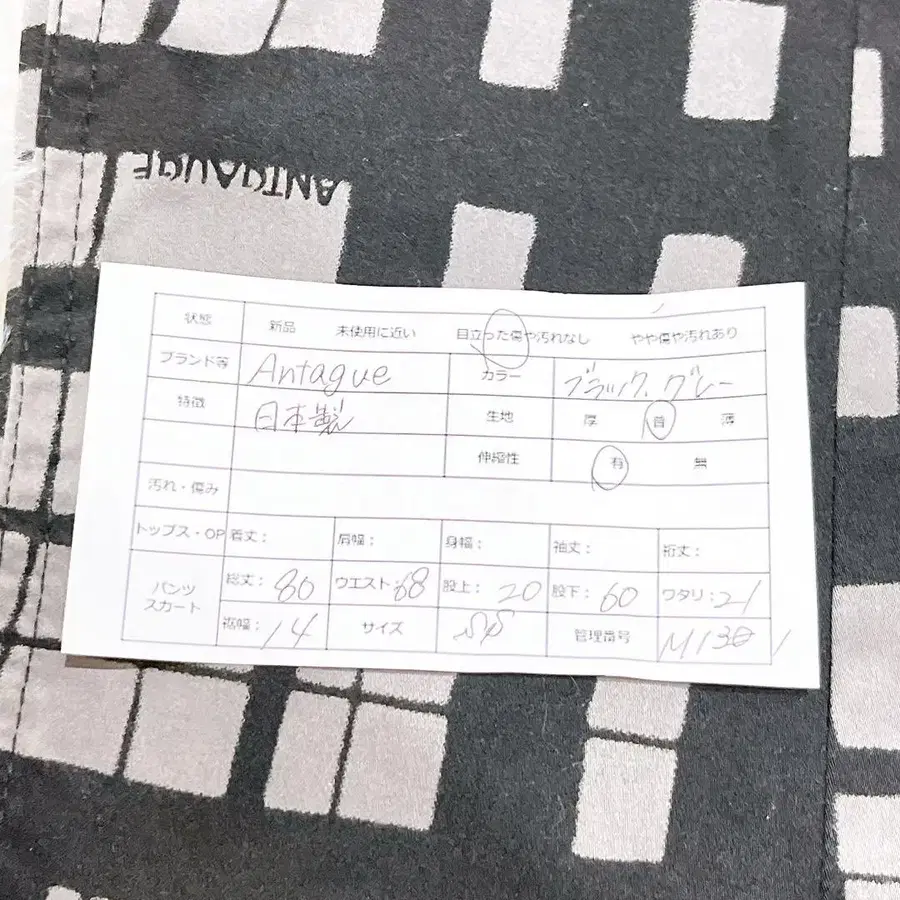 ANTGAUGE
状態 新品 未使用に近い 目立った傷や汚れなし やや傷や汚れあり
ブランド等 Antague カラー ブラック、グレー
特徴 日本製 生地 厚 普 薄
伸縮性 有 無
汚れ・傷み
トップス・OP 着丈: 肩幅: 身幅: 袖丈: 裄丈:
パンツ スカート 総丈: 80 ウエスト: 68 股上: 20 股下: 60 ワタリ: 21
裾幅: 14 サイズ 管理番号